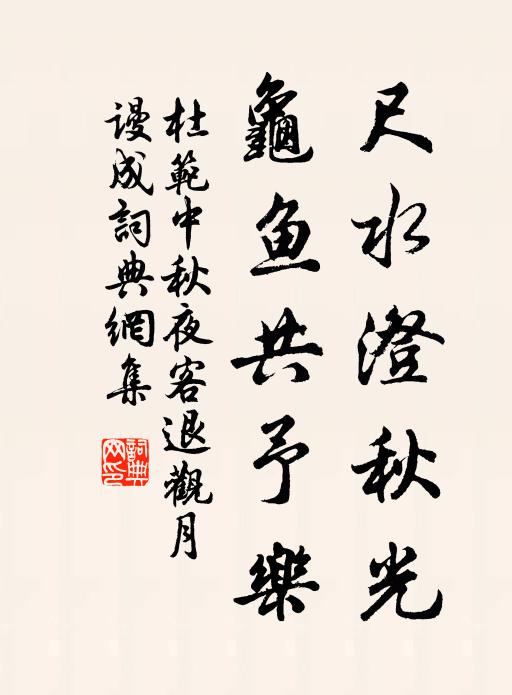 尺水澄秋光
龜鱼共予樂
杜範中秋夜客退觀月
謾成詞典網集
詞典网印